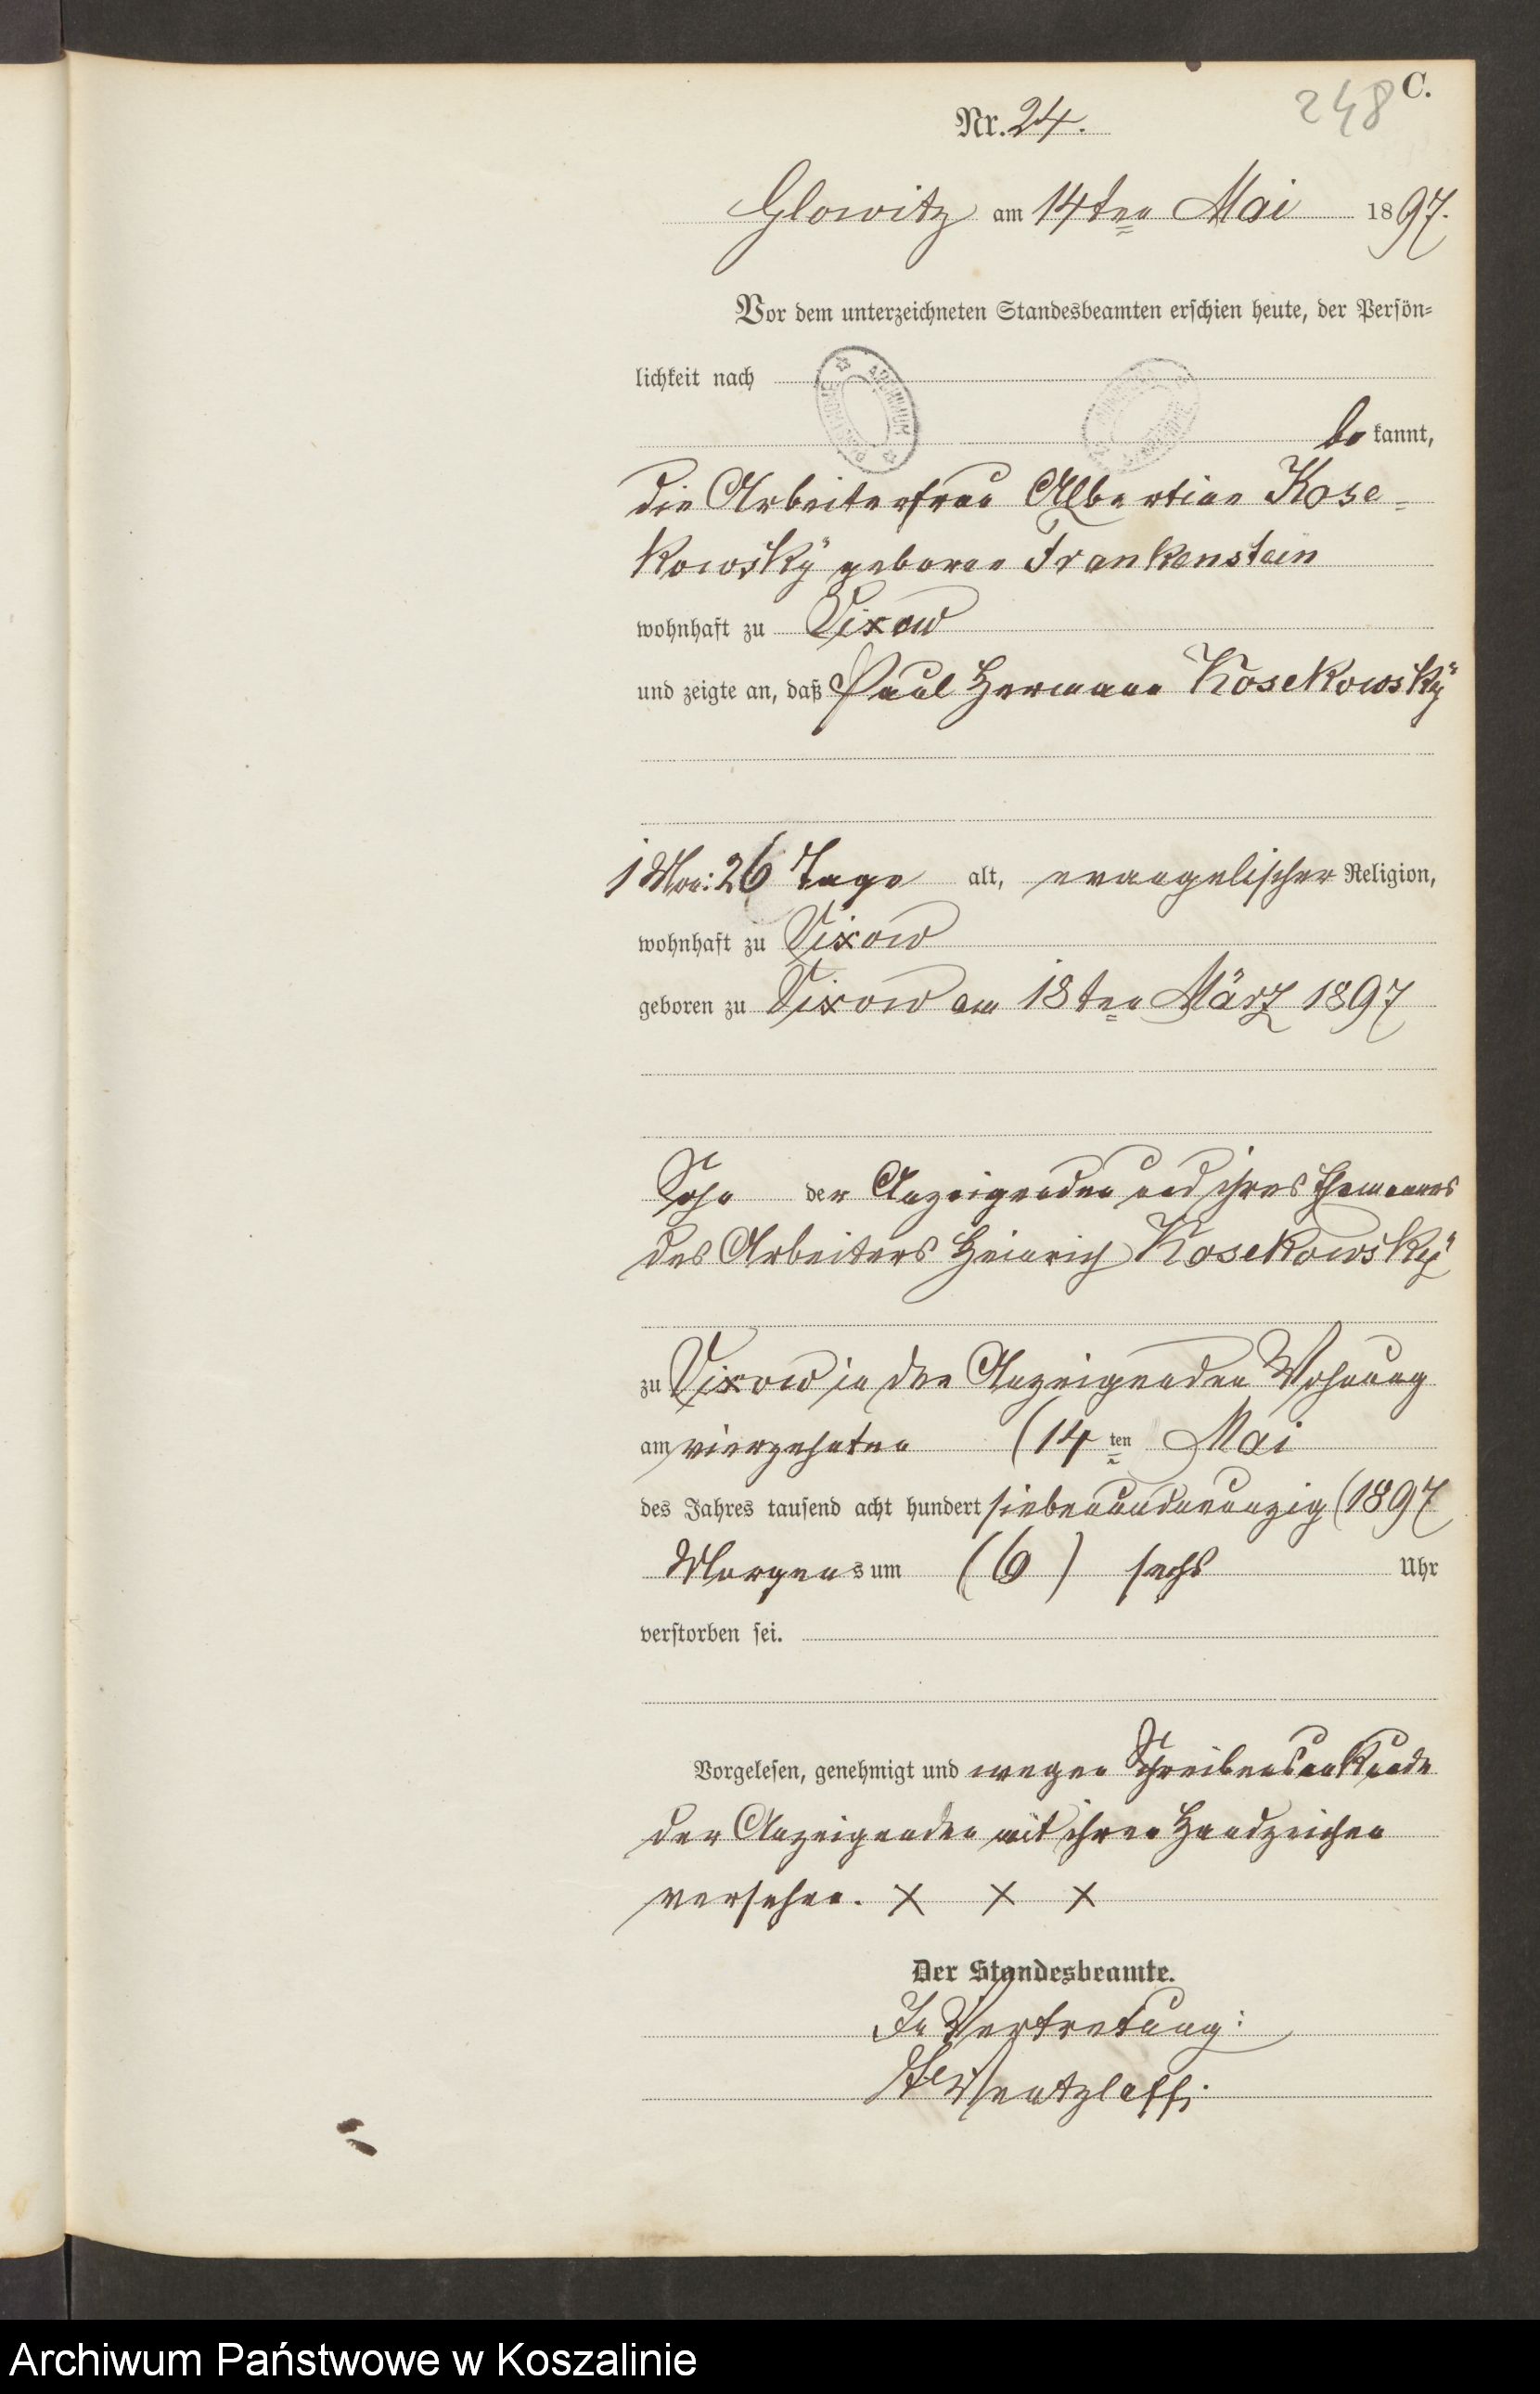 C.
248
Nr. 24.
Glowitz am 14ten Mai 1897.
Vor dem unterzeichneten Standesbeamten erschien heute, der Persön-
lichkeit nach
bekannt,
die Arbeiterfrau Albertine Kose-
kowsky geborne Frankenstein
wohnhaft zu Vixow
und zeigte an, daß Paul Hermann Kosekowsky
1 Mon: 26 Tage alt, evangelischer Religion,
wohnhaft zu Vixow
geboren zu Vixow am 18ten März 1897
Sohn der Anzeigenden und ihres Ehemannes
des Arbeiters Heinrich Kosekowsky
zu Vixow in der Anzeigenden Wohnung
am vierzehnten (14ten Mai
des Jahres tausend acht hundert siebenundneunzig (1897
Morgens um (6) sechs Uhr
verstorben sei.
Vorgelesen, genehmigt und wegen Schreibensunkunde
der Anzeigenden mit ihren Handzeichen
versehen. X X X
Der Standesbeamte.
In Vertretung:
Wentzlaff.
Archiwum Państwowe w Koszalinie